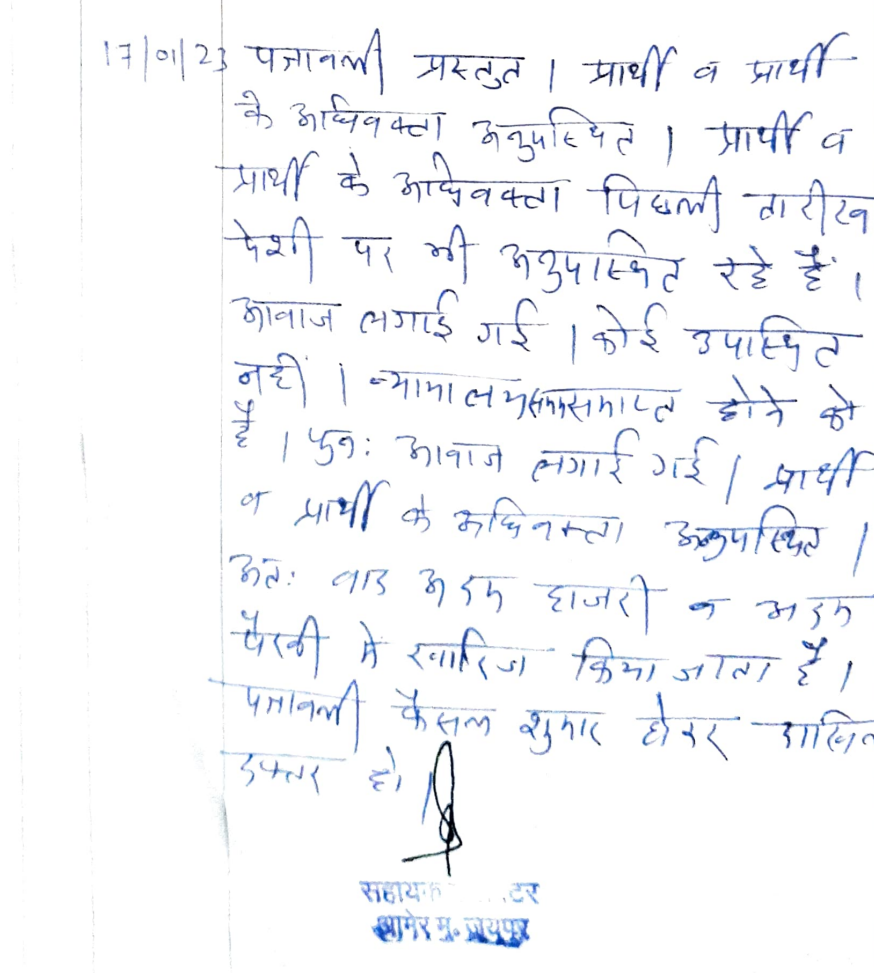 17/01/23 पत्रावली प्रस्तुत । प्रार्थी व प्रार्थी
के अधिवक्ता अनुपस्थित । प्रार्थी व
प्रार्थी के अधिवक्ता पिछली तारीख
पेशी पर भी अनुपस्थित रहे हैं ।
आवाज लगाई गई । कोई उपस्थित
नहीं । न्यायालय समय समाप्त होने को
है । पुनः आवाज लगाई गई । प्रार्थी
व प्रार्थी के अधिवक्ता अनुपस्थित ।
अतः वाद अदम हाजरी व अदम
पैरवी में खारिज किया जाता है ।
पत्रावली फैसल शुमार होकर दाखिल
दफ्तर हो ।
सहायक टर
आमेर मु. जयपुर